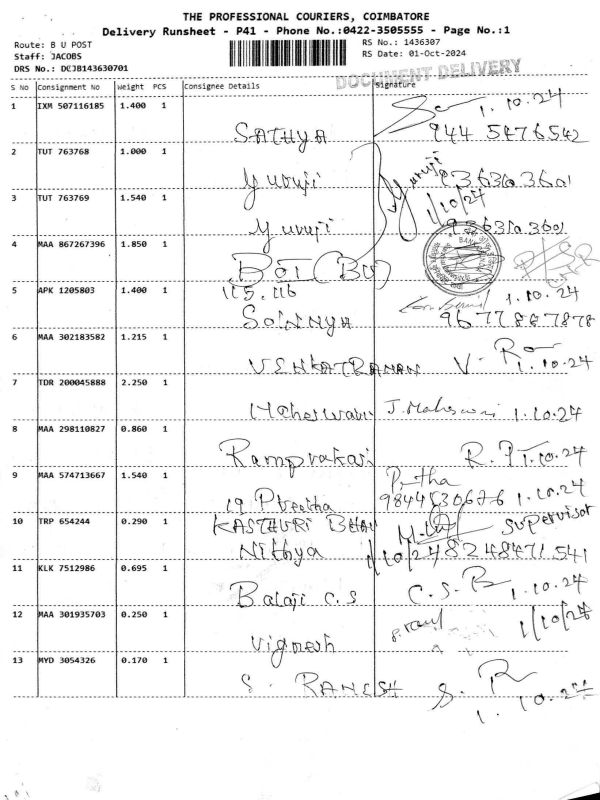 THE PROFESSIONAL COURIERS, COIMBATORE
Delivery Runsheet - P41 - Phone No.:0422-3505555 - Page No.:1
Route: B U POST
RS No.: 1436307
Staff: JACOBS
RS Date: 01-Oct-2024
DRS No.: DCJB143630701
DOCUMENT DELIVERY
S No Consignment No Weight PCS Consignee Details Signature
1 IXM 507116185 1.400 1
1.10.24
SATHYA 944 5476542
2 TUT 763768 1.000 1
Yuvuji
3 TUT 763769 1.540 1
1/10/24
Yuvuji
4 MAA 867267396 1.850 1
BOI (BU)
5 APK 1205803 1.400 1
115.116
1.10.24
SOWNYA 9677887878
6 MAA 302183582 1.215 1
VENKATRAMAN V. 1.10.24
7 TDR 200045888 2.250 1
Maheswari J. Maheswari 1.10.24
8 MAA 298110827 0.860 1
Ramprakas R. 1.10.24
9 MAA 574713667 1.540 1
19 Preetha 9844530676 1.10.24
10 TRP 654244 0.290 1
KASTHURI BHAV supervisor
Nithya 1/10/24 8248471541
11 KLK 7512986 0.695 1
Balaji C.S C.S.B 1.10.24
12 MAA 301935703 0.250 1
Vignesh 1/10/24
13 MYD 3054326 0.170 1
S. RAMESH S. R
1.10.24